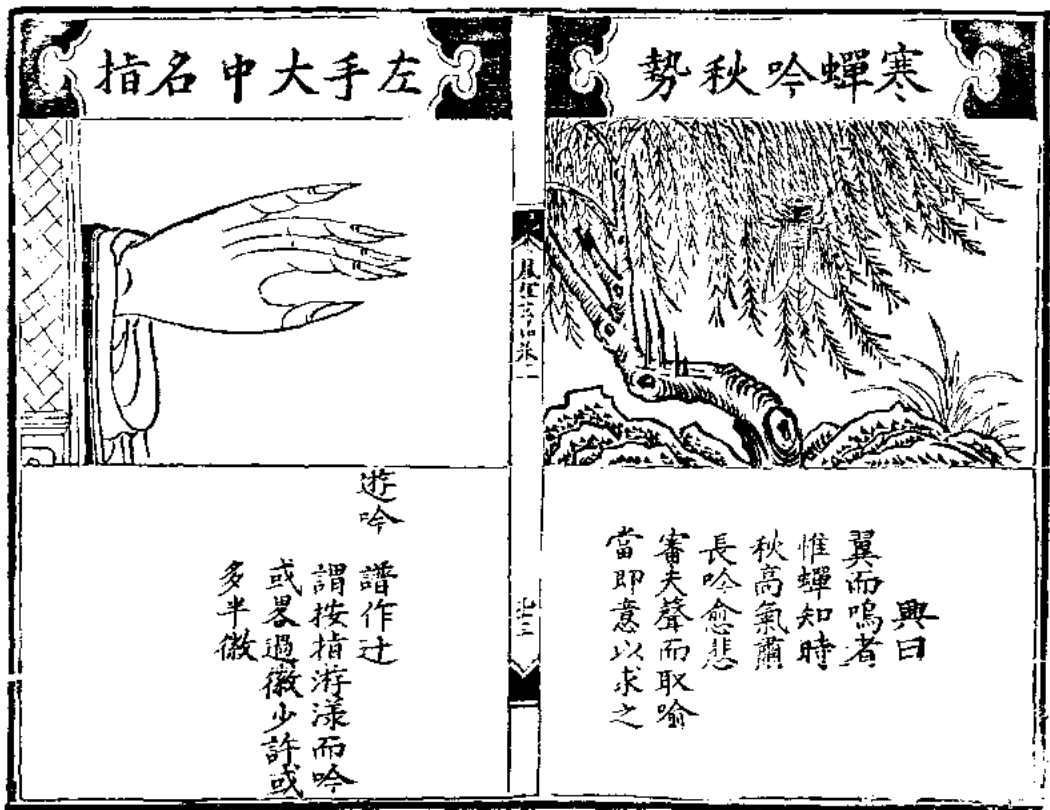 寒蟬吟秋勢
興曰
翼而鳴者
惟蟬知時
秋高氣肅
長吟愈悲
審夫聲而取喻
當即意以求之
左手大中名指
遊吟
譜作辻
謂按指游漾而吟
或畧過徽少許或
多半徽